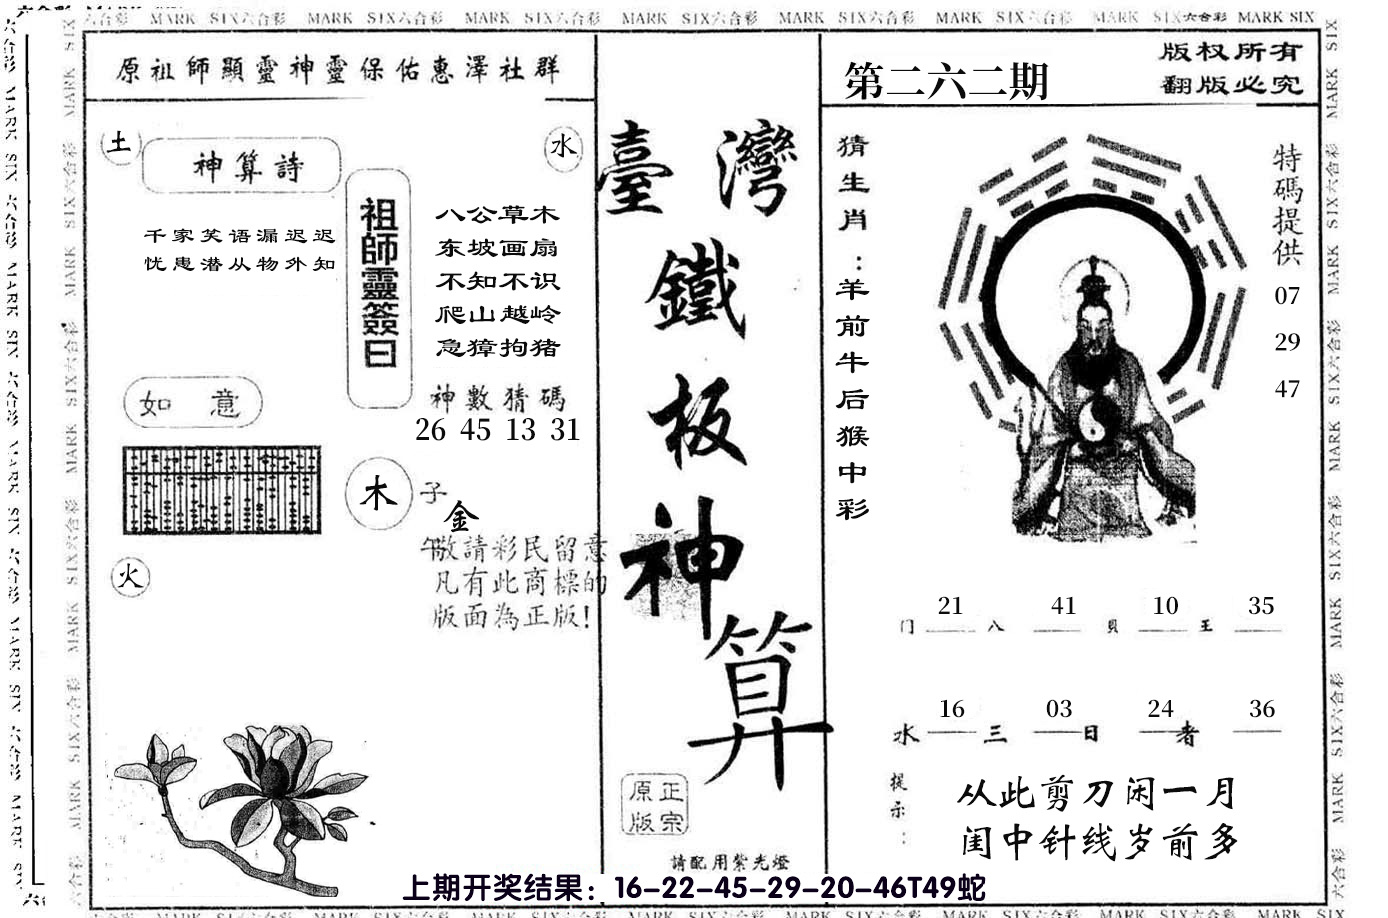 MARK SIX六合彩 MARK SIX六合彩 MARK SIX六合彩 MARK SIX六合彩 MARK SIX六合彩 MARK SIX六合彩 MARK SIX六合彩 MARK SIX
原祖師顯靈神靈保佑惠澤社群
土
水
神算詩
千家笑语漏迟迟
忧患潜从物外知
祖師靈簽曰
八公草木
东坡画扇
不知不识
爬山越岭
急獐拘猪
神數猜碼
26 45 13 31
如意
木
子
金
午
火
敬請彩民留意
凡有此商標的
版面為正版!
臺灣
鐵
板
神
算
正宗
原版
請配用紫光燈
第二六二期
版权所有
翻版必究
猜生肖:羊前牛后猴中彩
特碼提供
07
29
47
21 41 10 35
门 八 貝 王
16 03 24 36
水 三 日 者
提示:
从此剪刀闲一月
闺中针线岁前多
上期开奖结果：16-22-45-29-20-46T49蛇